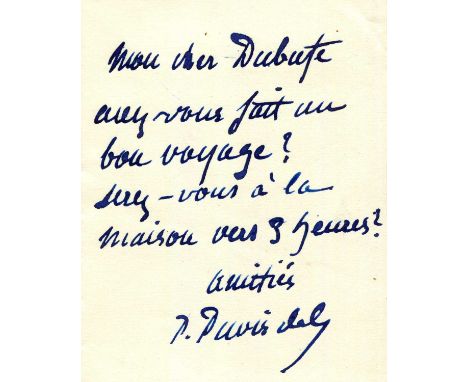 Mon cher Dubufe
avez-vous fait un
bon voyage?
serez-vous à la
maison vers 3 heures?
amitiés
P. Puvis de Ch